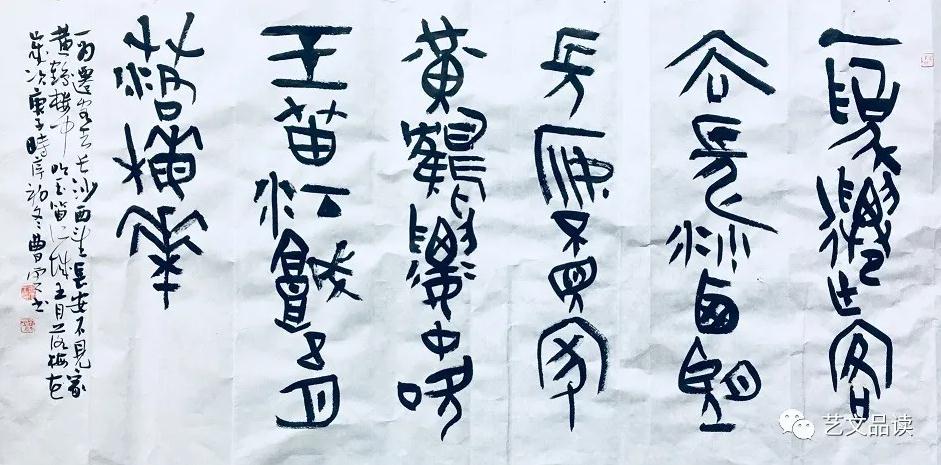 一為遷客
去長沙西望
長安不見家
黃鶴樓中吹
玉笛江城五月
落梅花
一为遷客去长沙西望長安不見家
黄鹤楼中吹玉笛江城五月落梅花
歲次庚子時初冬曹书
艺文品读